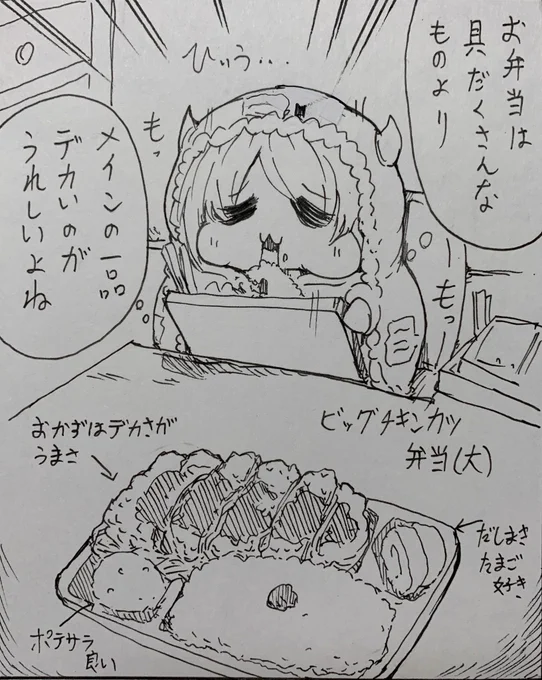 お弁当は
具だくさんな
ものより
メインの一品
デカいのが
うれしいよね
ひゅう…
もっ
もっ
ビッグチキンカツ
弁当(大)
おかずはデカさが
うまさ
だしまき
たまご
好き
ポテサラ
良い